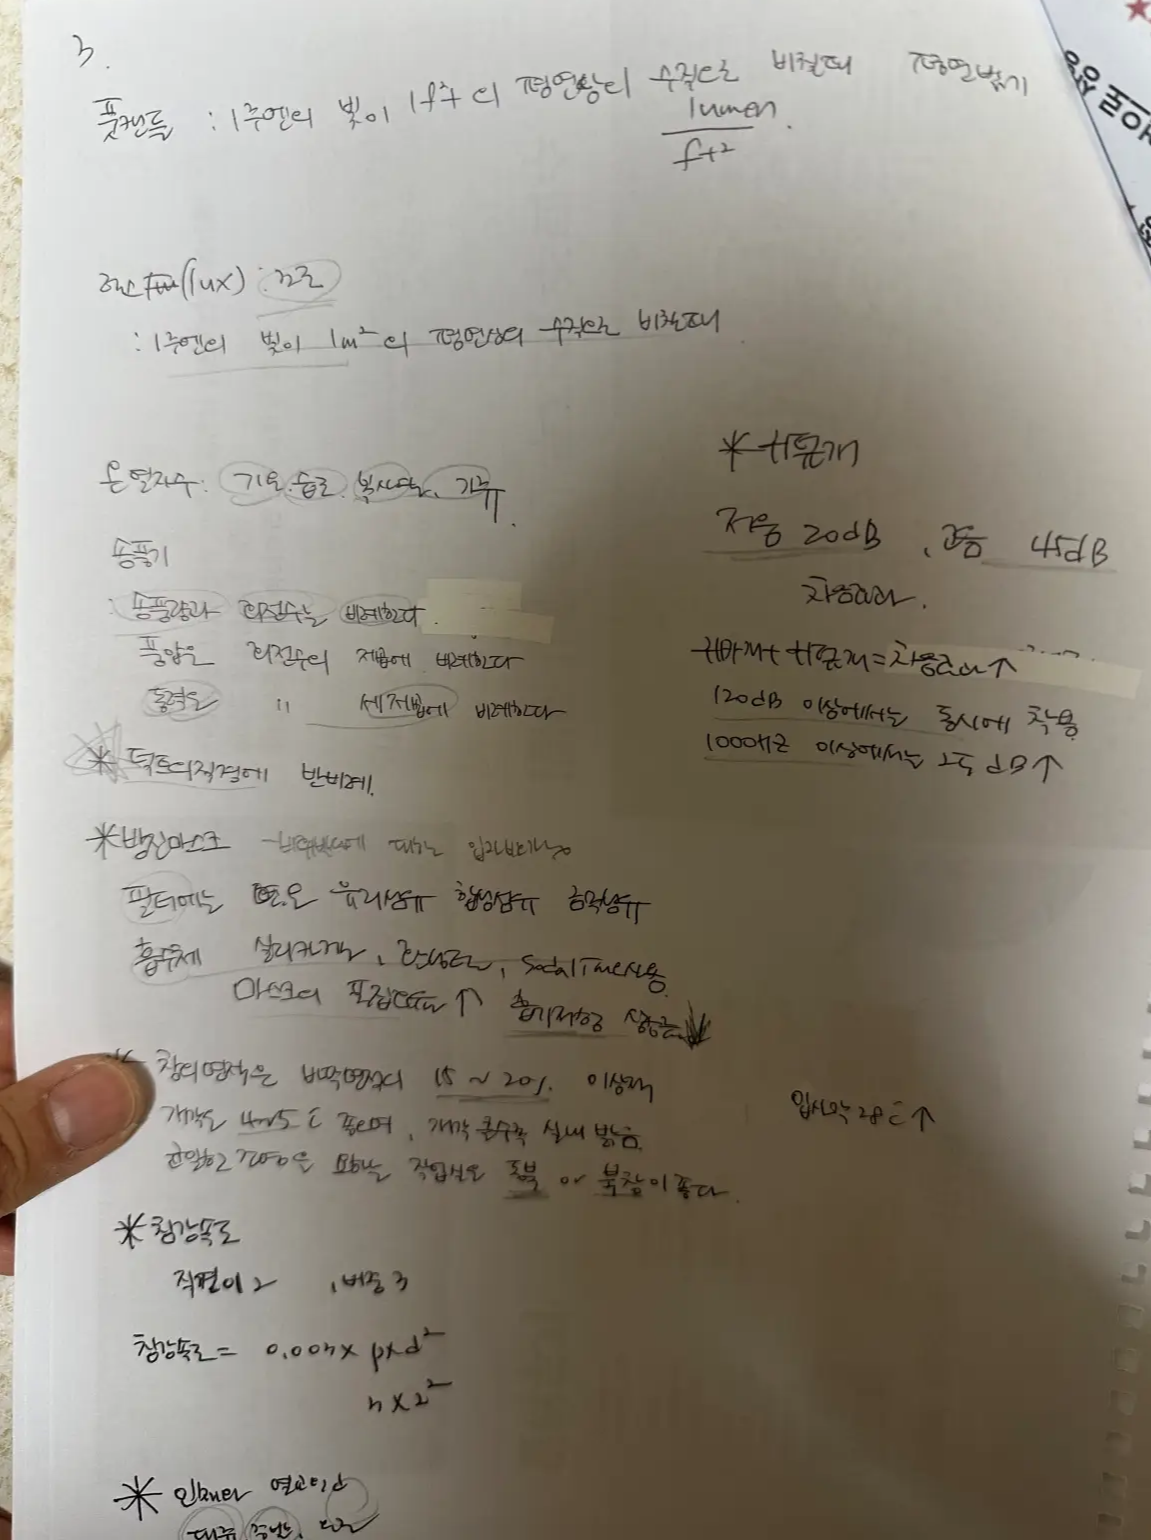 3.
풋캔들 : 1루멘의 빛이 1ft의 평면상의 수직으로 비칠때 평면밝기
lumen
ft²
(lux) : 조도
: 1루멘의 빛이 1m²의 평면상의 수직으로 비칠때
온열지수: 기온. 습도. 복사열. 기류.
송풍기
: 송풍량과 회전수는 비례한다.
풍압은 회전수의 제곱에 비례한다
동력은 " 세제곱에 비례한다
* 덕트의직경에 반비례.
* 방진마스크
필터에는 면.모 유리섬유 합성섬유 금속섬유
흡수제 실리카겔, 활성탄, Soda lime사용.
마스크의 포집효율↑ 흡기저항 상승률
창의면적은 바닥면적의 15~20% 이상
개각은 4~5° 좋으며, 개각 클수록 실내 밝음.
균일한 조명을 요하는 작업실은 동북 or 북창이좋다.
* 침강속도
직경이 2, 비중 3
침강속도 = 0.003 x p x d²
3 x 2²
* 인체와 열교환
대류 복사
* 귀덮개
저음 20dB, 고음 45dB
차음효과.
귀마개+귀덮개=차음효과↑
120dB 이상에서는 동시에 착용
1000Hz 이상에서는 dB↑
입사각 28°↑